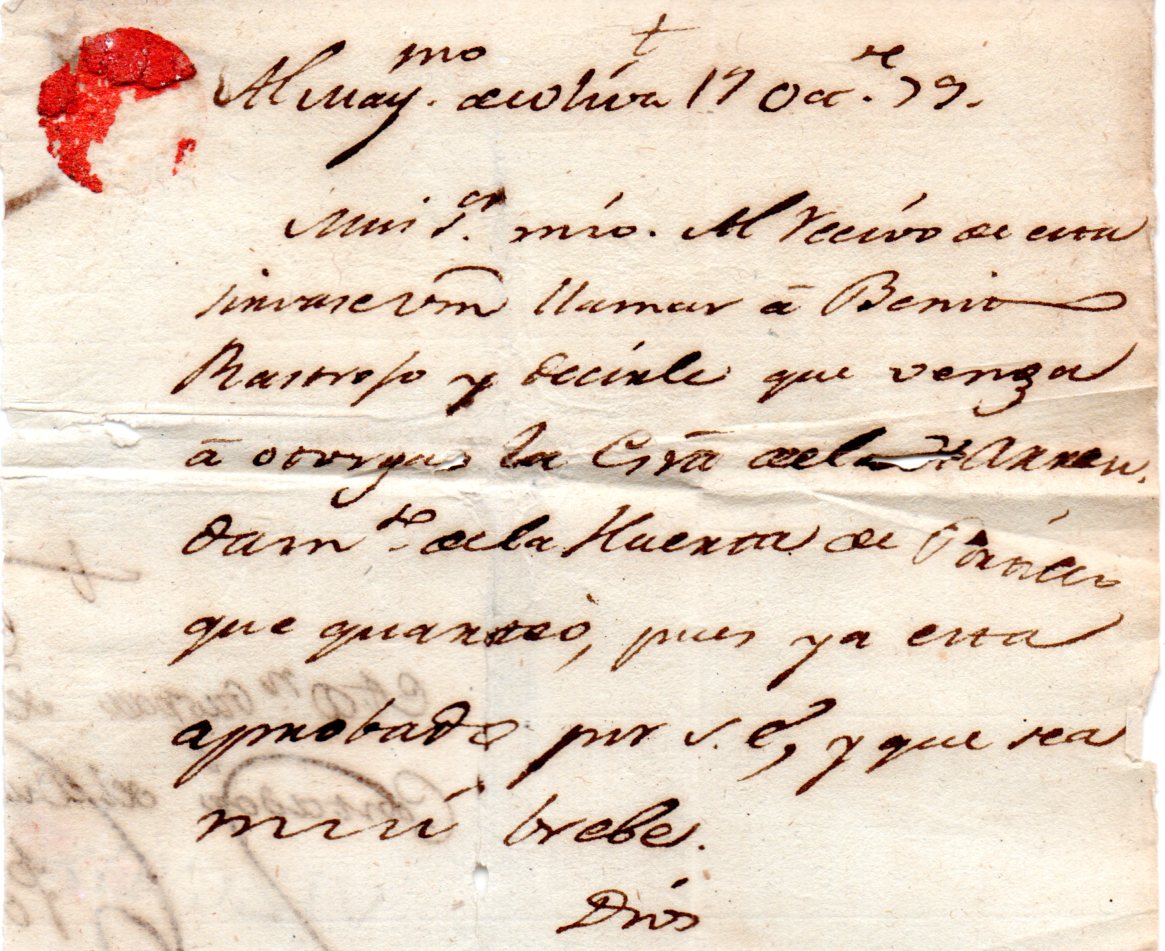 Al May.mo de oliva 17 Oct.re 79.
Mui S.or mio. Al recivo de esta
sirvase Vm llamar â Benito
Rastrojo y decirle que venga
â otorgar la Esrâ de la Arren
dam.to de la Huerta de
que quarteò, pues ya esta
aprobado por S.E, y que sea
mui brebe.
Dios